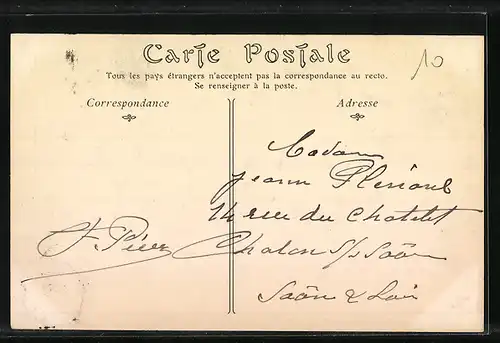 Carte Postale
Tous les pays étrangers n'acceptent pas la correspondance au recto.
Se renseigner à la poste.
Correspondance
Adresse
10
Madame
Jeann
14 rue du Chatelet
Chalon s/s Saôn
Saôn & Loir